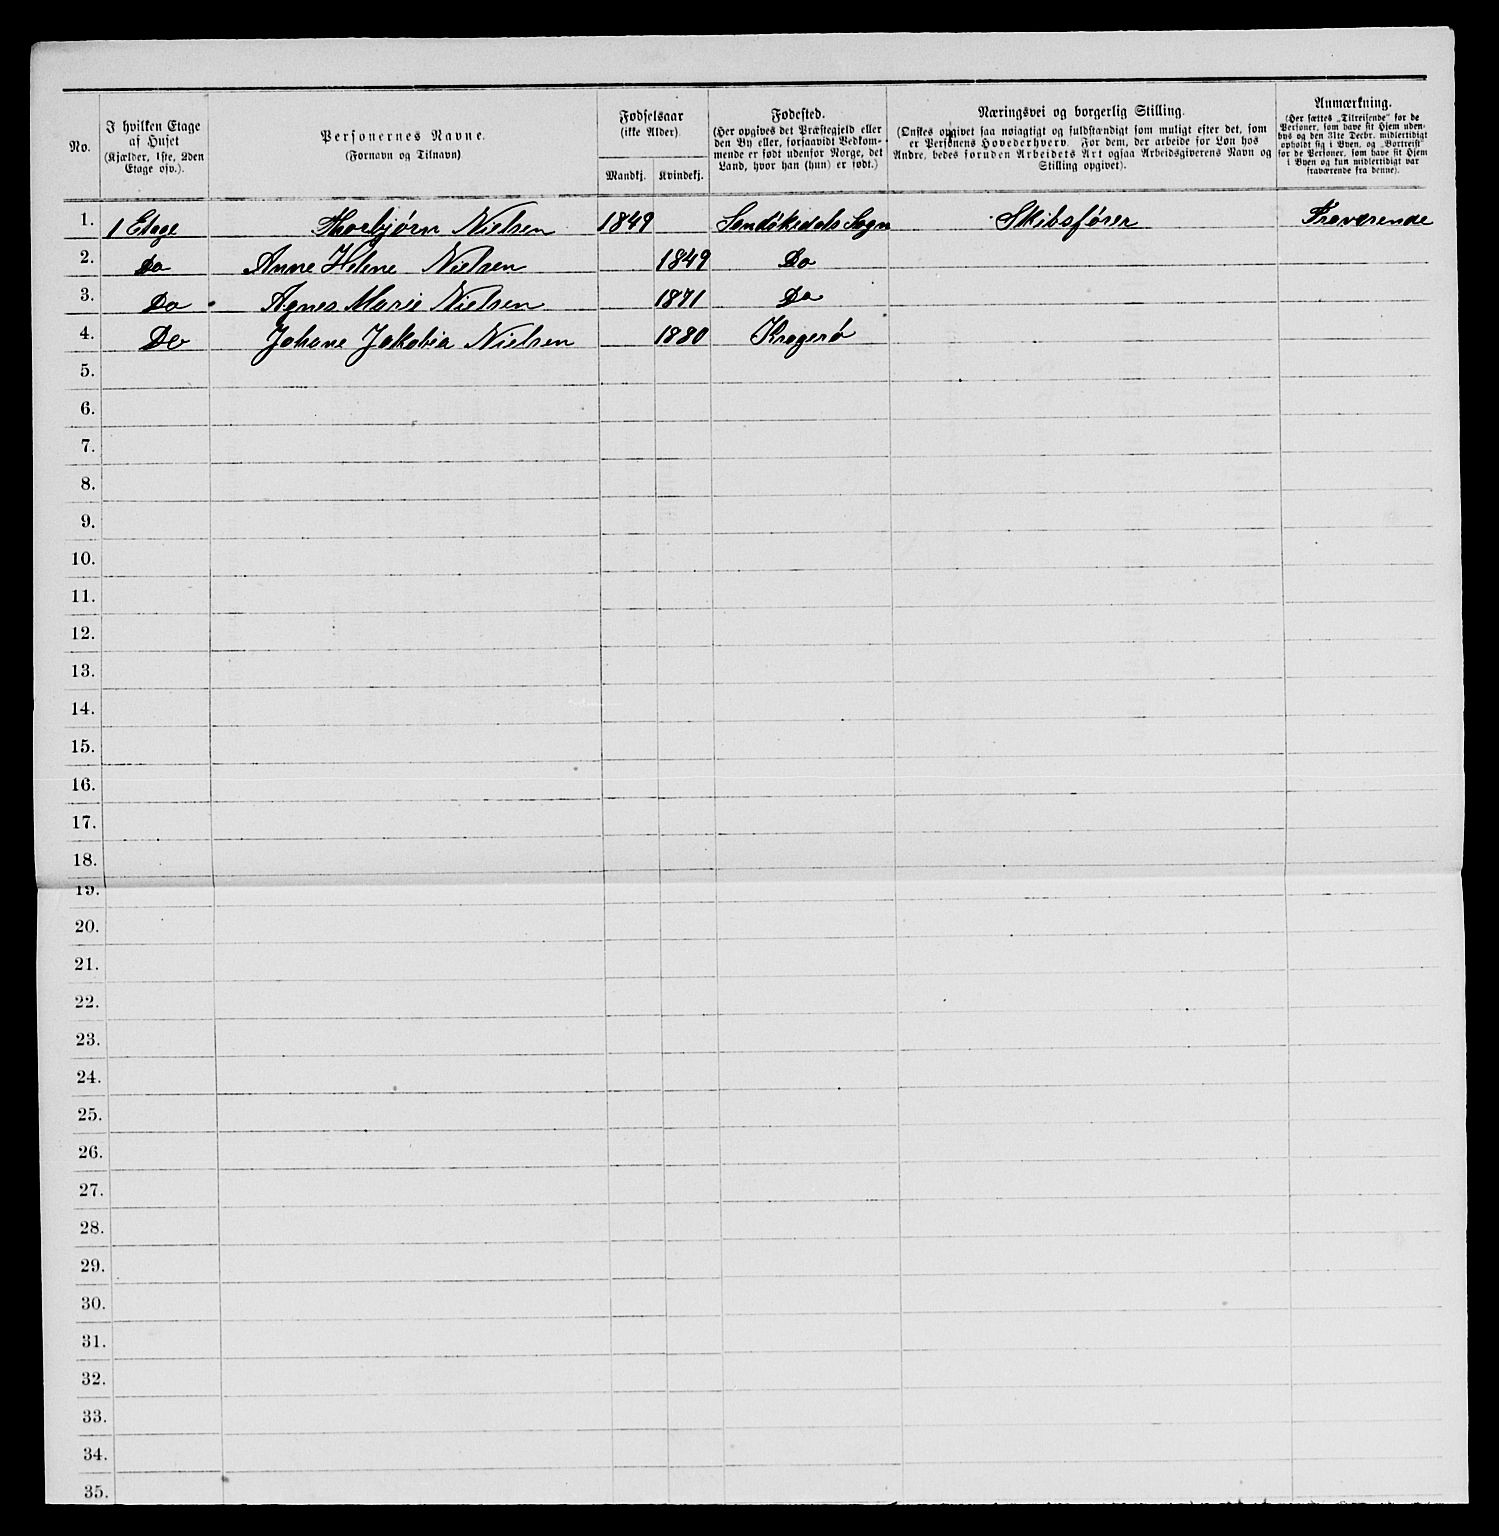 No.
I hvilken Etage
af Huset
(Kjælder, 1ste, 2den
Etage osv.).
Personernes Navne.
(Fornavn og Tilnavn)
Fødselsaar
(ikke Alder)
Mandkj. Kvindekj.
Fødested.
(Her opgives det Præstegjeld eller
den By eller, forsaavidt Vedkom-
mende er født udenfor Norge, det
Land, hvor han (hun) er født.)
Næringsvei og borgerlig Stilling.
(Ønskes opgivet saa nøiagtigt og fuldstændigt som muligt efter det, som
er Personens Hovederhverv. For dem, der arbeide for Løn hos
Andre, bedes foruden Arbeidets Art ogsaa Arbeidsgiverens Navn og
Stilling opgivet).
Anmærkning.
(Her sættes „Tilreisende" for de
Personer, som have sit Hjem uden-
bys og den 31te Decbr. midlertidigt
opholdt sig i Byen, og „Bortreist"
for de Personer, som have sit Hjem
i Byen og kun midlertidigt var
fraværende fra denne).
1. 1 Etage Thorbjørn Nielsen 1849 Sandøkedals Sogn Skibsfører Fraværende
2. Do Anne Helene Nielsen 1849 Do
3. Do Agnes Marie Nielsen 1871 Do
4. Do Johane Jakobia Nielsen 1880 Kragerø
5.
6.
7.
8.
9.
10.
11.
12.
13.
14.
15.
16.
17.
18.
19.
20.
21.
22.
23.
24.
25.
26.
27.
28.
29.
30.
31.
32.
33.
34.
35.